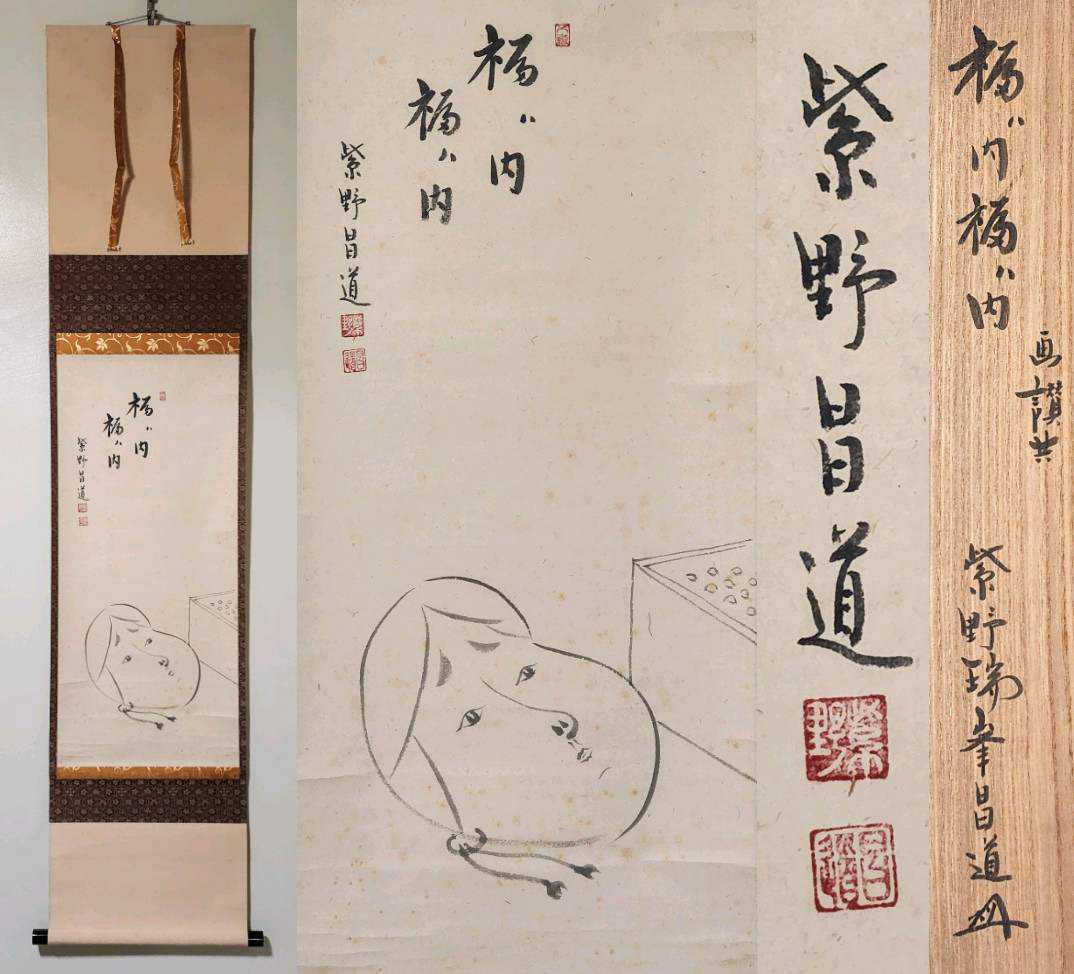 福ハ内
福ハ内
紫野昌道
福ハ内
福ハ内
紫野昌道
紫野昌道
紫野
昌道
福ハ内福ハ内
画讃共
紫野瑞峯昌道